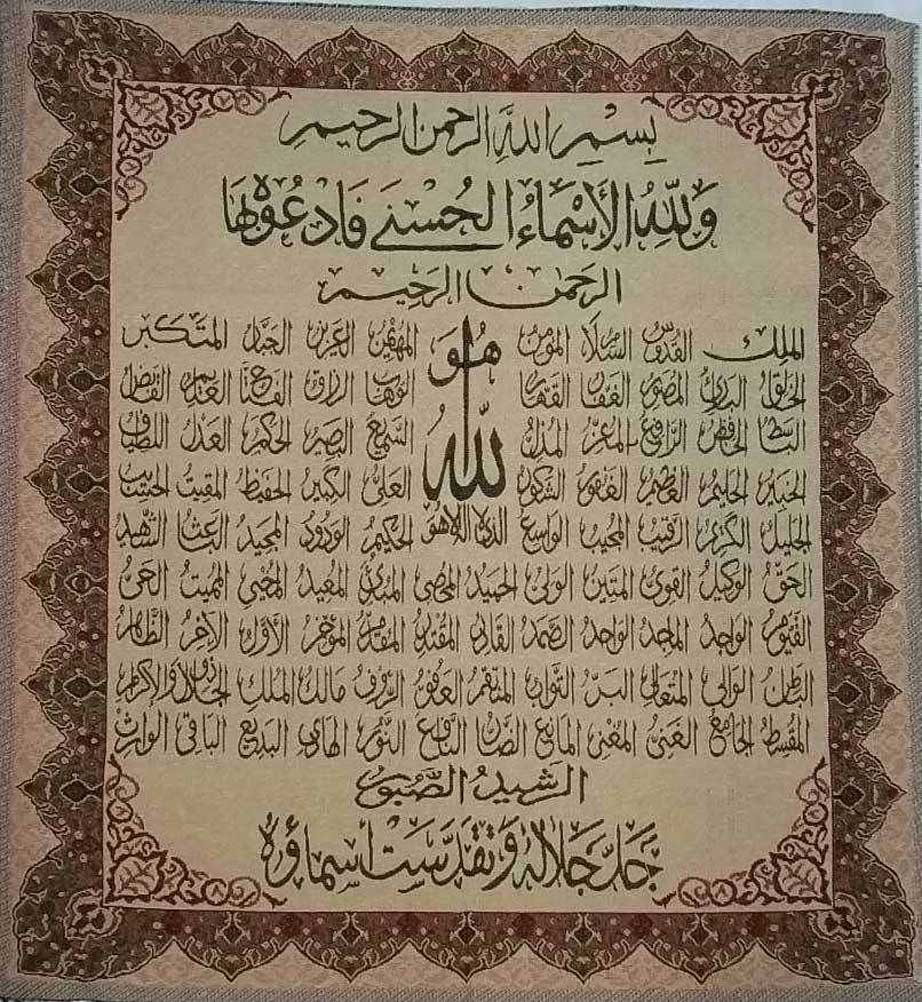 بِسْمِ اللهِ الرحمن الرحيم
وَلِلّٰهِ الْأَسْمَاءُ الْحُسْنَىٰ فَادْعُوهُ بِهَا
الرحمن الرحيم
الملك القدوس السلام المؤمن هُوَ المهيمن العزيز الجبار المتكبر
الخالق البارئ المصور الغفار القهار الوهاب الرزاق الفتاح العليم القابض
الباسط الخافض الرافع المعز المذل السميع البصير الحكم العدل اللطيف
الخبير الحليم العظيم الغفور الشكور الله العلي الكبير الحفيظ المقيت الحسيب
الجليل الكريم الرقيب المجيب الواسع الذي لا اله الا هو الحكيم الودود المجيد الباعث الشهيد
الحق الوكيل القوي المتين الولي الحميد المحصي المبدئ المعيد المحيي المميت الحي
القيوم الواجد الماجد الواحد الصمد القادر المقتدر المقدم المؤخر الأول الآخر الظاهر
الباطن الوالي المتعالي البر التواب المنتقم العفو الرؤف مالك الملك ذو الجلال والإكرام
المقسط الجامع الغني المغني المانع الضار النافع النور الهادي البديع الباقي الوارث
الرشيد الصبور
جَلَّ جَلَالُهُ وَتَقَدَّسَتْ أسماؤه